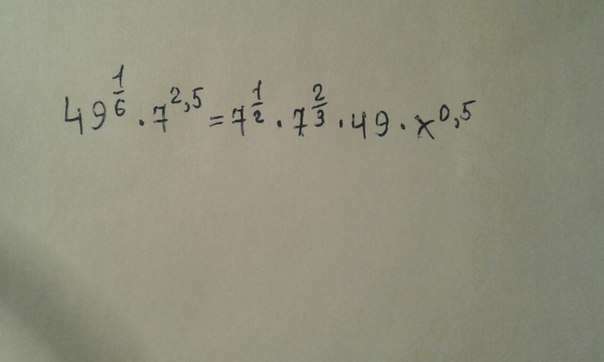 49^{1/6} · 7^{2,5} = 7^{1/2} · 7^{2/3} · 49 · x^{0,5}